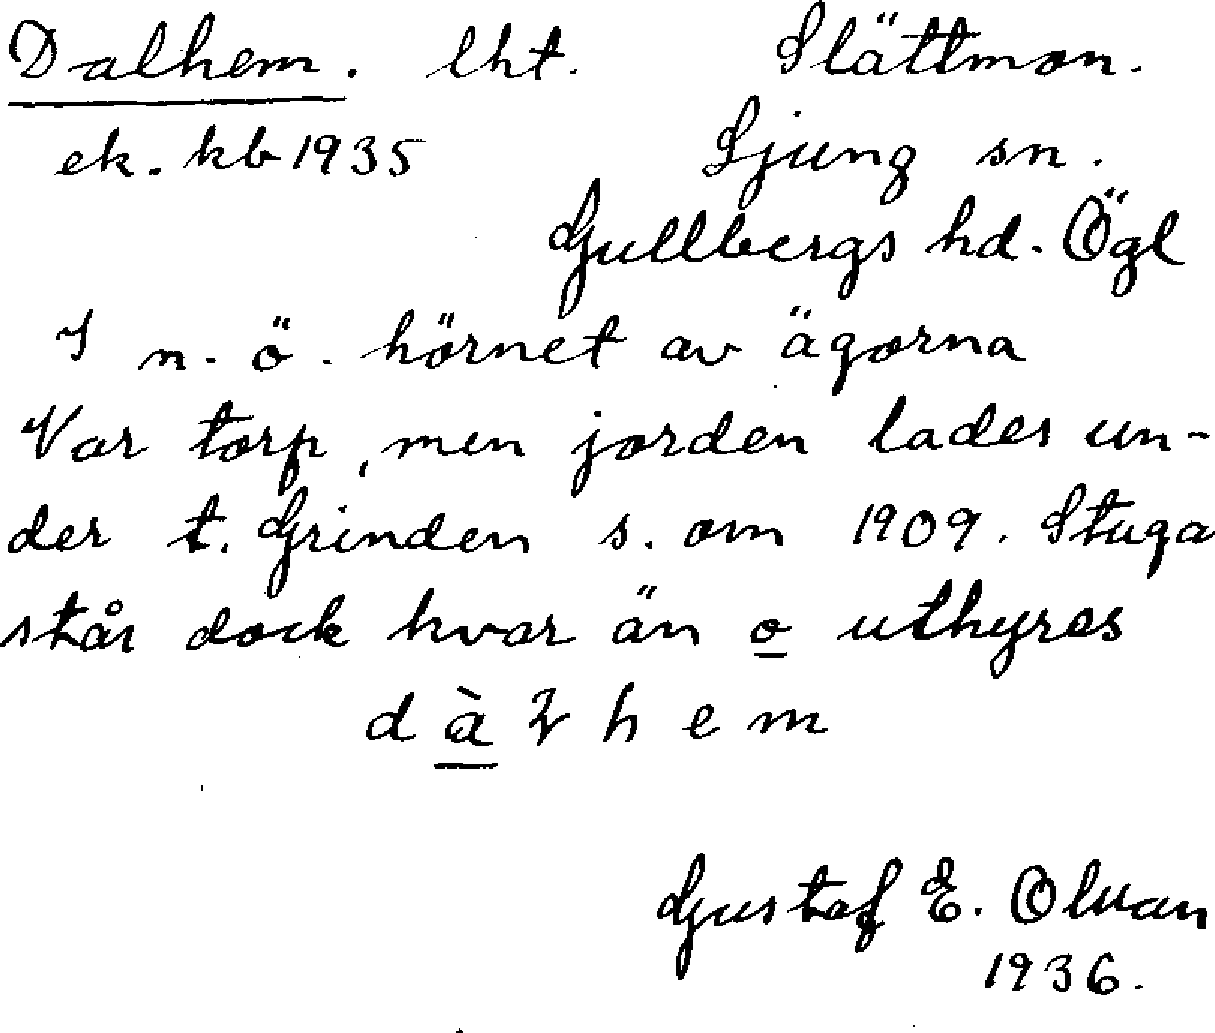 Dalhem. lht. Slättmon.
ek. kb 1935 Ljung sn.
Gullbergs hd. Ögl
I n. ö. hörnet av ägorna
Var torp, men jorden lades un-
der t. Grinden s. om 1909. Stuga
står dock kvar än o uthyres
d à h e m
Gustaf E.
1936.